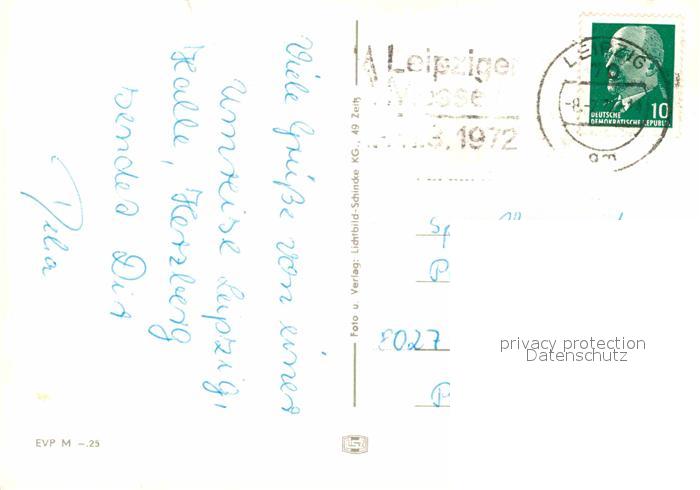 Viele Grüße von einer
Umreise Leipzig,
Halle, Herzberg
sendet Dir
Foto u. Verlag: Lichtbild-Schincke KG., 49 Zeitz
EVP M –.25
Leipziger
Messe
.3.1972
LEIPZIG
-8-
DEUTSCHE
DEMOKRATISCHE REPUBLIK
10
am
Sp
P
8027
P
privacy protection
Datenschutz